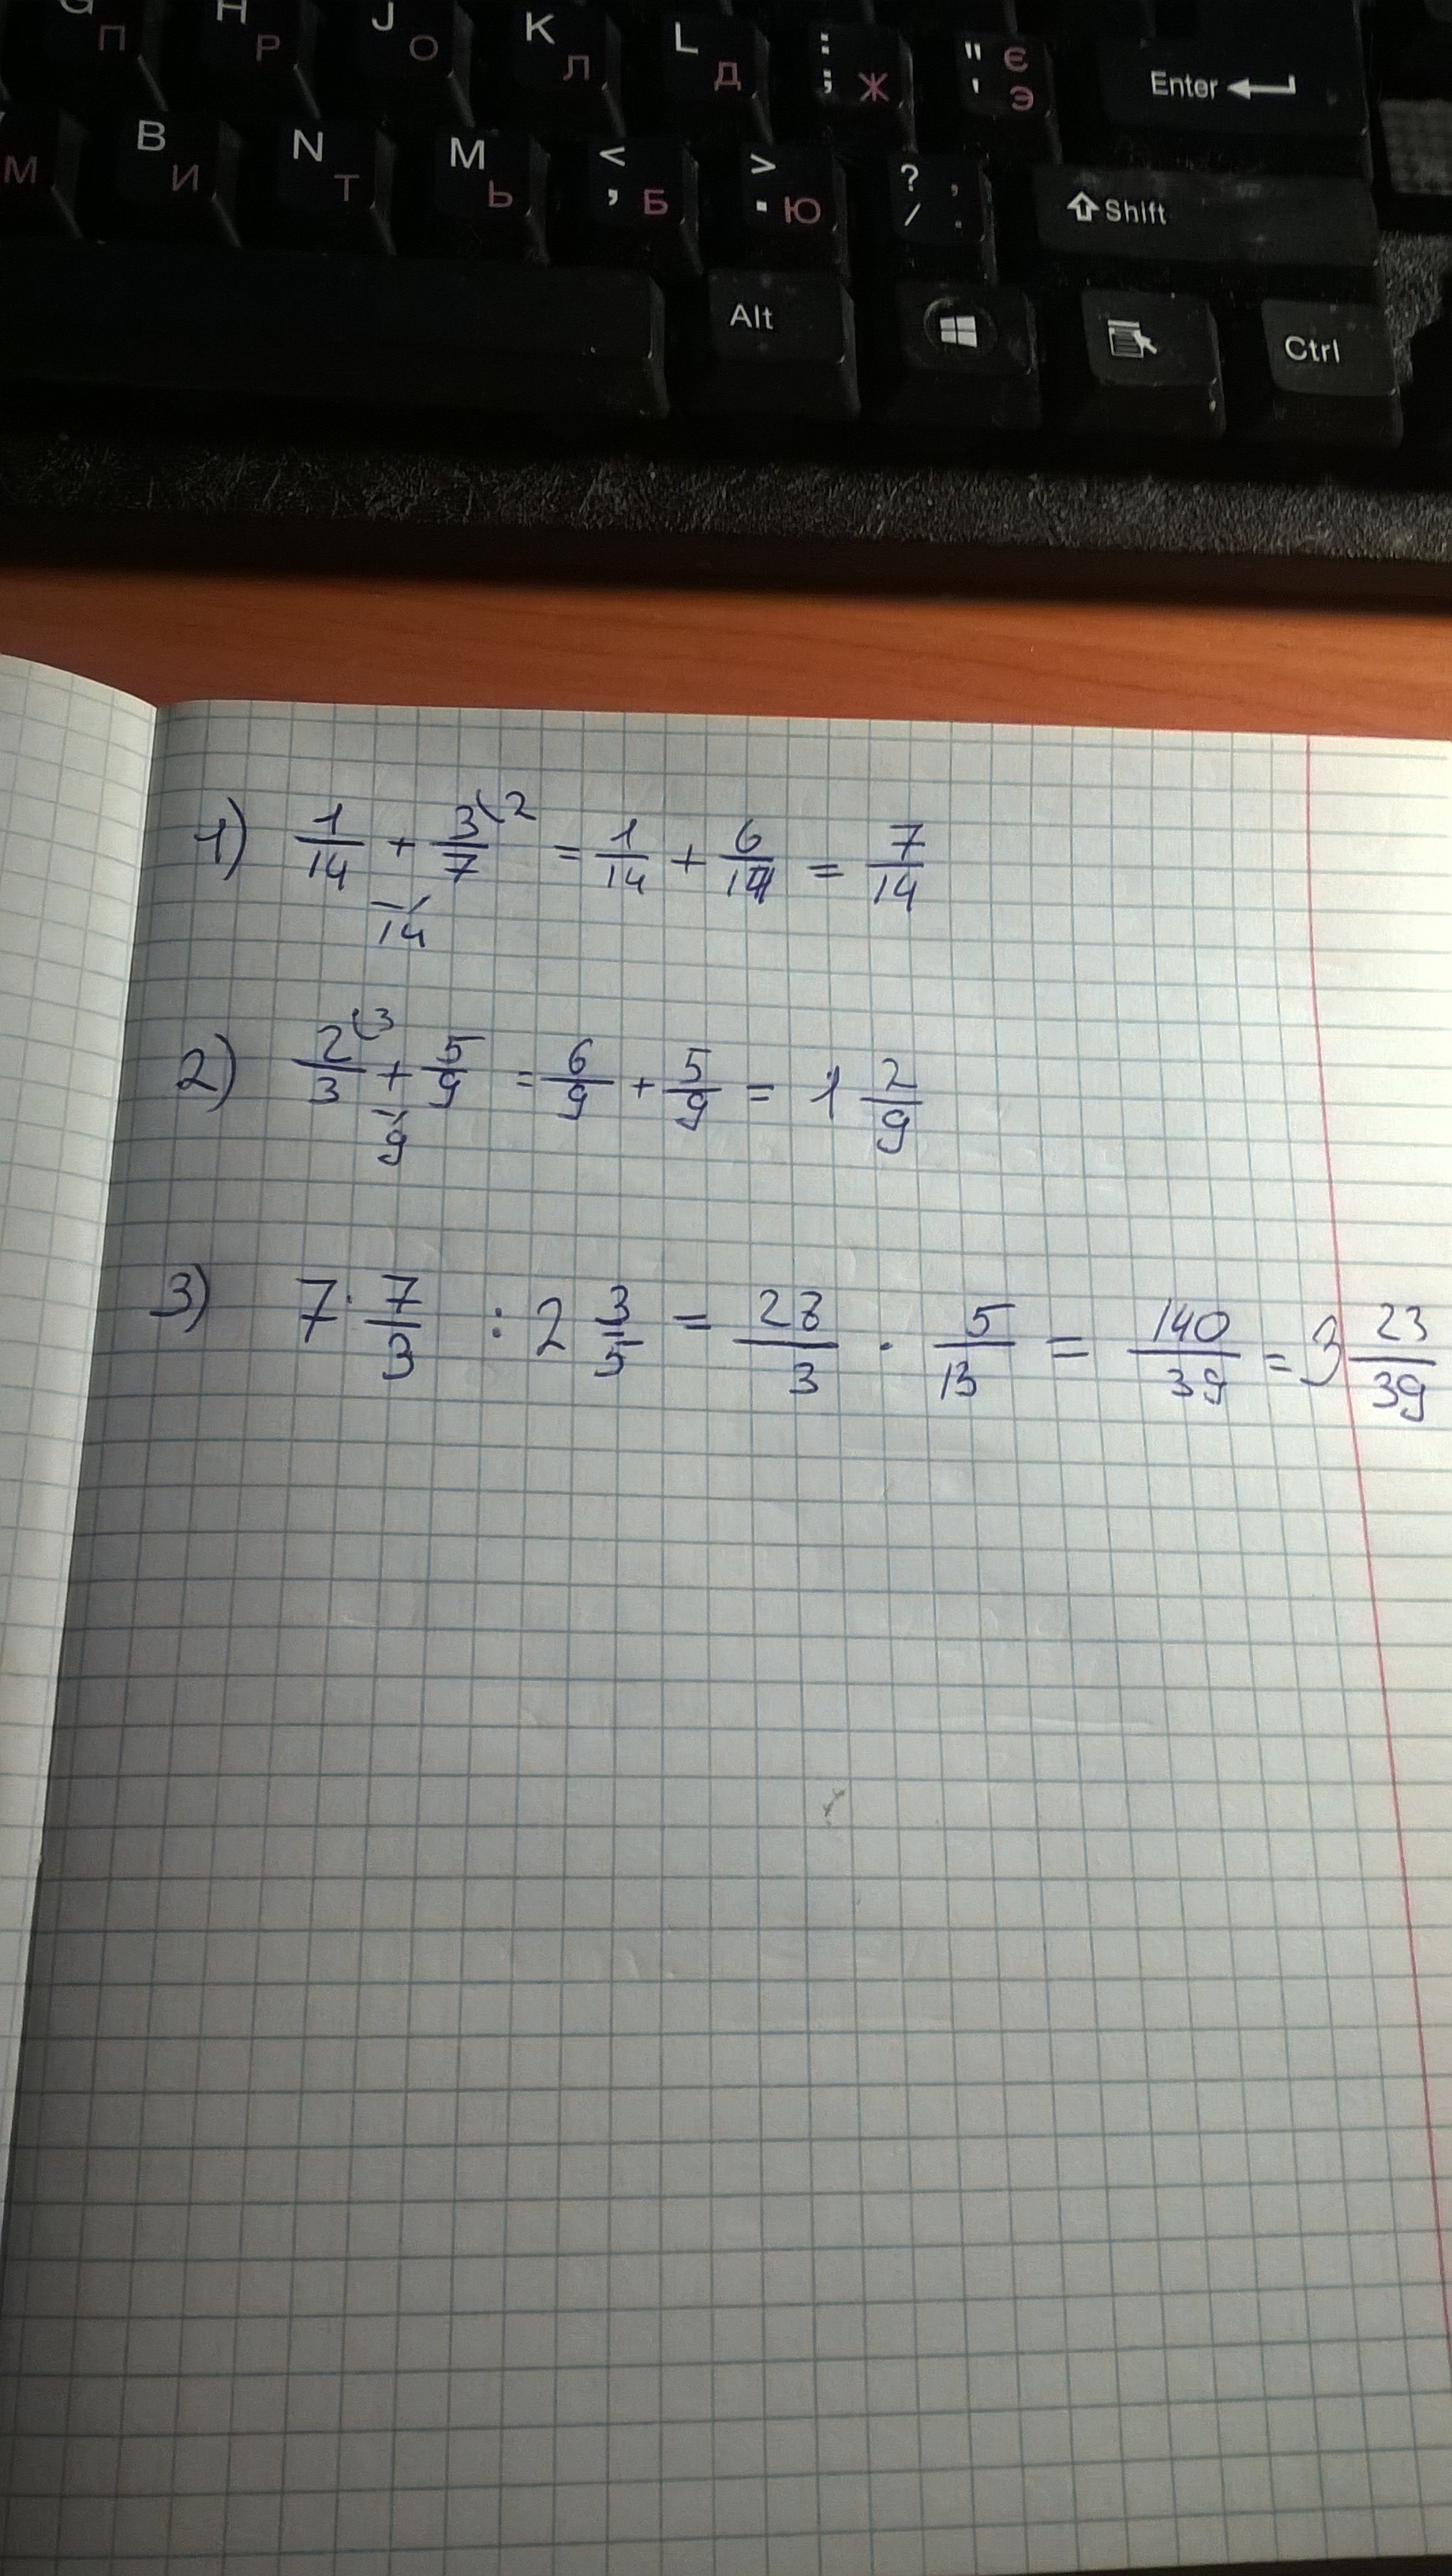 G П H Р J О K Л L Д : ; Ж " ' Є Э Enter
М B И N Т M Ь < , Б > . Ю ? / , . Shift
Alt Ctrl
1) 1/14 + 3/7 (2 = 1/14 + 6/14 = 7/14
14
2) 2/3 (3 + 5/9 = 6/9 + 5/9 = 1 2/9
9
3) 7 · 7/3 : 2 3/5 = 28/3 · 5/13 = 140/39 = 3 23/39